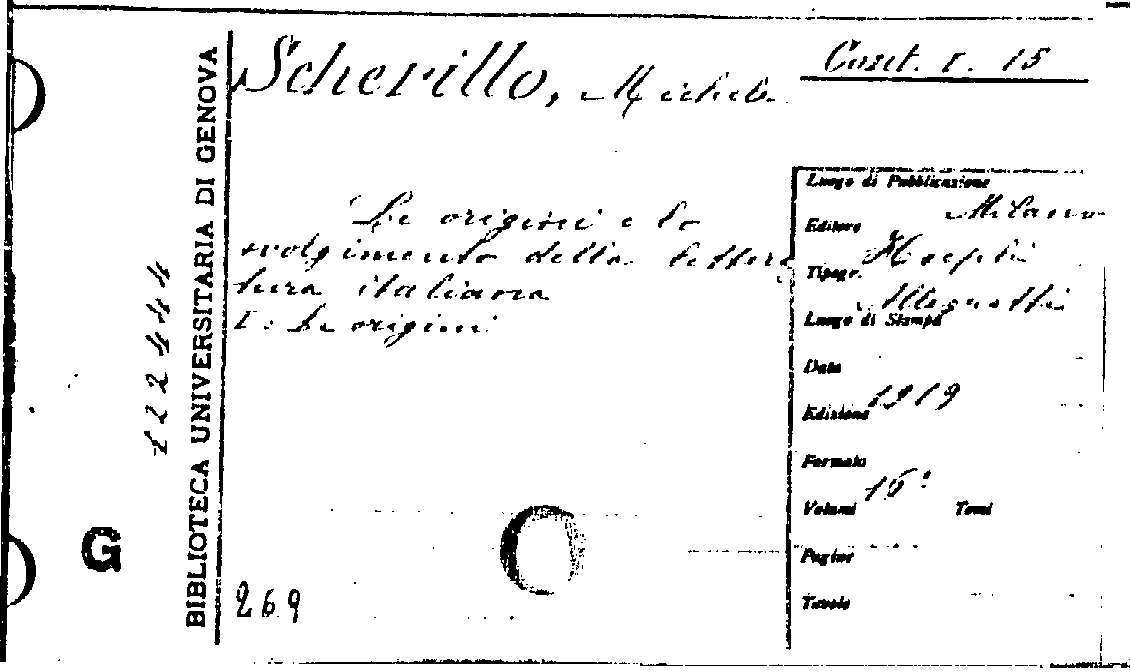 Scherillo, Michele
Cont. r. 15
Le origini e lo
svolgimento della lettera
tura italiana
I: Le origini
Luogo di Pubblicazione
Milano
Editore
Hoepli
Tipogr.
Allegretti
Luogo di Stampa
Data
1919
Edizione
Formato
16°
Volumi Tomi
Pagine
Tavole
BIBLIOTECA UNIVERSITARIA DI GENOVA
122444
G
269